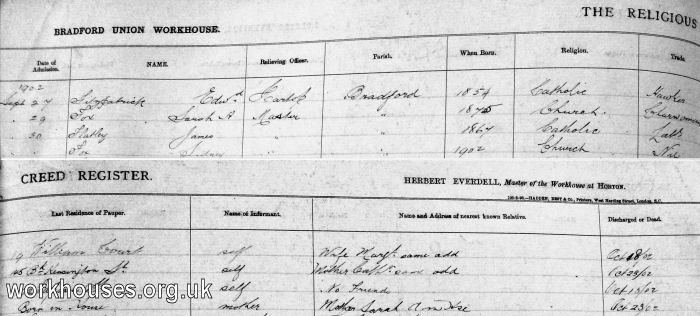 THE RELIGIOUS
BRADFORD UNION WORKHOUSE.
Date of Admission. NAME. Relieving Officer. Parish. When Born. Religion. Trade
1902
Sept 27 Fitzpatrick Edwd Bradford 1854 Catholic Hawker
" 29 Fox Sarah A Master " 1875 Church
" 30 Flatley James " " 1867 Catholic Lab
" Fox Sidney " " 1902 Church Nil
CREED REGISTER. HERBERT EVERDELL, Master of the Workhouse at HORTON.
Last Residence of Pauper. Name of Informant. Name and Address of nearest known Relative. Discharged or Dead.
19 William Court self Wife Margt same add Oct 18/02
self Mother Cathe same add Oct 28/02
self No Friends Oct 13/02
Born in House mother Mother Sarah Ann Oct 23/02
workhouses.org.uk